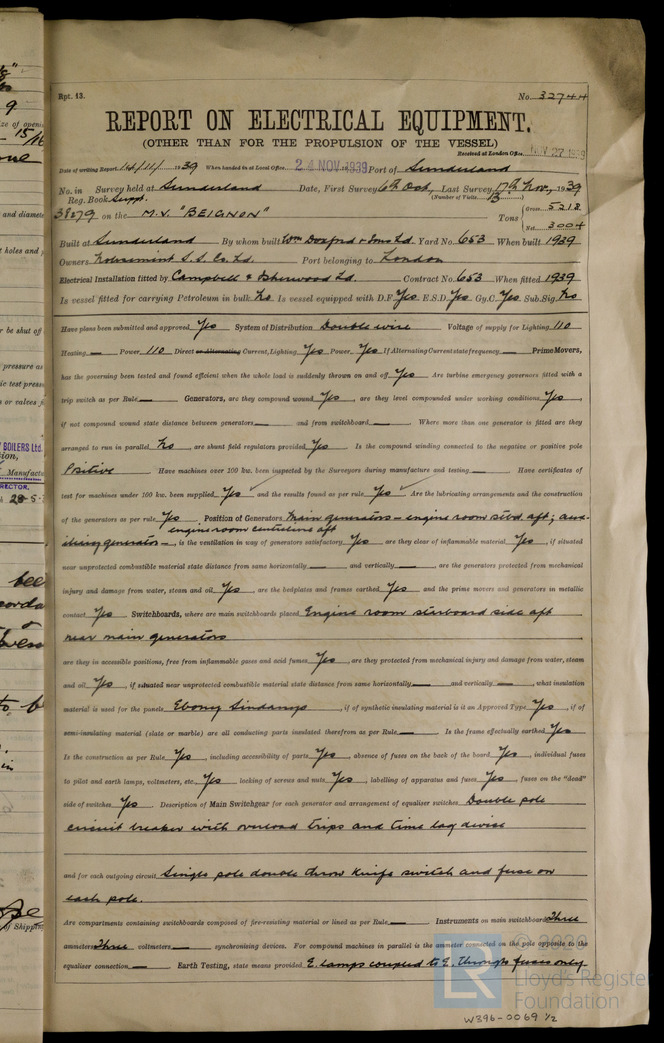 Rpt. 13.
No. 32744
REPORT ON ELECTRICAL EQUIPMENT.
(OTHER THAN FOR THE PROPULSION OF THE VESSEL)
Received at London Office NOV 27 1939
Date of writing Report 1939 When handed in at Local Office 24 NOV 1939 Port of Sunderland
No. in Survey held at Sunderland Date, First Survey 6th Oct, Last Survey 17th Nov, 1939
Reg. Book Suppt. (Number of Visits 13)
38279 on the M.V. "BEIGNON" Tons Gross 5218 Net 3004
Built at Sunderland By whom built Wm Doxford & Sons Ld. Yard No. 653 When built 1939
Owners S.S. Co. Ld. Port belonging to London
Electrical Installation fitted by Campbell & Isherwood Ld. Contract No. 653 When fitted 1939
Is vessel fitted for carrying Petroleum in bulk No Is vessel equipped with D.F. Yes E.S.D. Yes Gy.C. Yes Sub.Sig. No
Have plans been submitted and approved Yes System of Distribution Double wire Voltage of supply for Lighting 110
Heating — Power 110 Direct or Alternating Current, Lighting Yes Power Yes If Alternating Current state frequency — Prime Movers,
has the governing been tested and found efficient when the whole load is suddenly thrown on and off Yes Are turbine emergency governors fitted with a
trip switch as per Rule — Generators, are they compound wound Yes, are they level compounded under working conditions Yes,
if not compound wound state distance between generators — and from switchboard — Where more than one generator is fitted are they
arranged to run in parallel No, are shunt field regulators provided Yes Is the compound winding connected to the negative or positive pole
Positive Have machines over 100 kw. been inspected by the Surveyors during manufacture and testing — Have certificates of
test for machines under 100 kw. been supplied Yes and the results found as per rule Yes Are the lubricating arrangements and the construction
of the generators as per rule Yes Position of Generators Main generators – engine room stbd aft; aux-
engine room centreline aft
iliary generator –, is the ventilation in way of generators satisfactory Yes are they clear of inflammable material Yes, if situated
near unprotected combustible material state distance from same horizontally — and vertically —, are the generators protected from mechanical
injury and damage from water, steam and oil Yes, are the bedplates and frames earthed Yes and the prime movers and generators in metallic
contact Yes Switchboards, where are main switchboards placed Engine room starboard side aft
near main generators
are they in accessible positions, free from inflammable gases and acid fumes Yes, are they protected from mechanical injury and damage from water, steam
and oil Yes, if situated near unprotected combustible material state distance from same horizontally — and vertically —, what insulation
material is used for the panels Ebony Sindanyo, if of synthetic insulating material is it an Approved Type Yes, if of
semi-insulating material (slate or marble) are all conducting parts insulated therefrom as per Rule — Is the frame effectually earthed Yes
Is the construction as per Rule Yes, including accessibility of parts Yes, absence of fuses on the back of the board Yes, individual fuses
to pilot and earth lamps, voltmeters, etc. Yes locking of screws and nuts Yes, labelling of apparatus and fuses Yes, fuses on the "dead"
side of switches Yes Description of Main Switchgear for each generator and arrangement of equaliser switches Double pole
circuit breaker with overload trips and time lag device
and for each outgoing circuit Single pole double throw knife switch and fuse on
each pole.
Are compartments containing switchboards composed of fire-resisting material or lined as per Rule — Instruments on main switchboard Three
ammeters Three voltmeters — synchronising devices. For compound machines in parallel is the ammeter connected on the pole opposite to the
equaliser connection — Earth Testing, state means provided E. lamps coupled to E. through fuses only
© 2020
LR
Lloyd's Register
Foundation
W396-0069 1/2